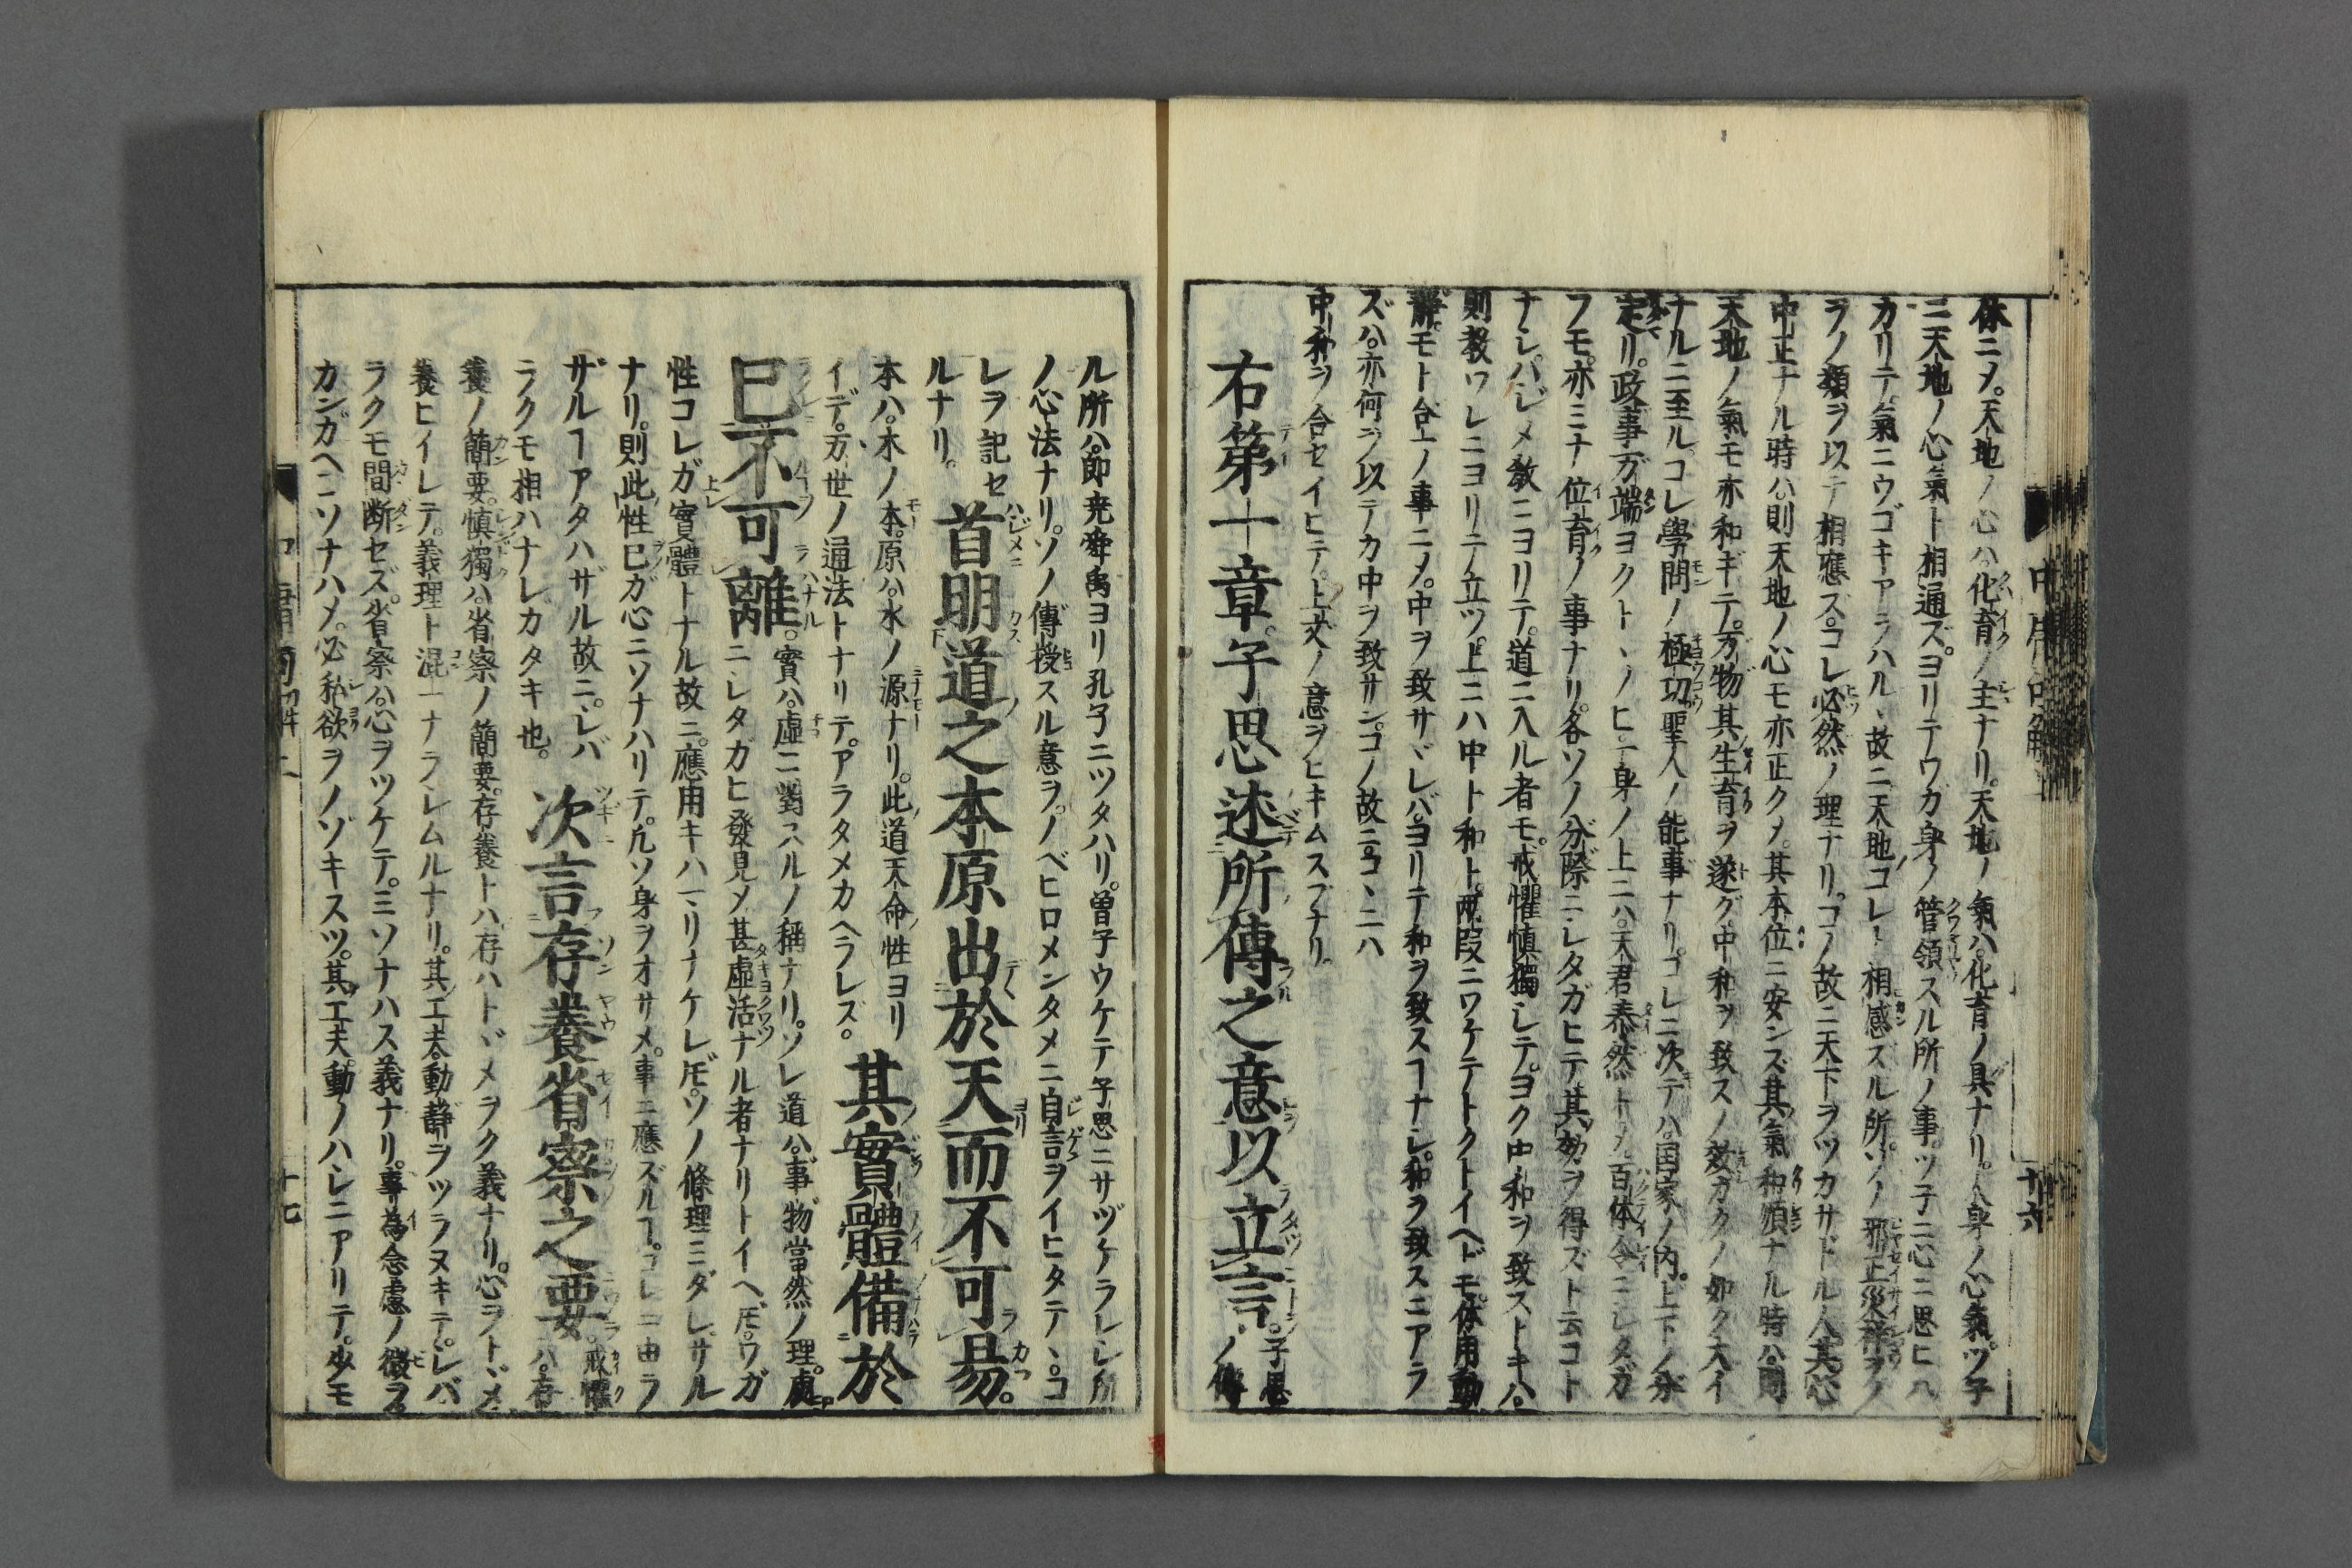 体ニメ。天地ノ心ハ。化育ノ主ナリ。天地ノ氣ハ。化育ノ具ナリ。人身ノ心氣。ツ子
ニ天地ノ心氣ト相通ズ。ヨリテワガ身ノ管領スル所ノ事。ツ子ニ心ニ思ヒハ
カリテ。氣ニウゴキアラハル、故ニ天地コレト相感スル所。ソノ邪正災祥ヲノ
ヅカラノ類ヲ以テ相應ズ。コレ必然ノ理ナリ。コノ故ニ天下ヲツカサドル人。其心
中正ナル時ハ。則天地ノ心モ亦正クメ。其本位ニ安ンズ。其氣和順ナル時ハ。則
天地ノ氣モ亦和ギテ。万物其生育ヲ遂グ。中和ヲ致スノ效。カクノ如ク大イ
ナルニ至ル。コレ學問ノ極功。聖人ノ能事ナリ。コレニ次テハ。国家ノ内。上下ノ分
定リ。政事万端ヨクトヽノヒ。一身ノ上ニハ。天君泰然トメ。百体令ニシタガ
フモ。亦ミナ位育ノ事ナリ。各ソノ分際ニシタガヒテ。其効ヲ得ズト云コト
ナシ。ハジメ教ニヨリテ。道ニ入ル者モ。戒懼慎獨シテ。ヨク中和ヲ致ストキハ。
則教ワレニヨリテ立ツ。上ニハ中ト和ト。兩段ニワケテトクトイヘドモ。体用動
静モト合一ノ事ニメ。中ヲ致サヾレバ。ヨリテ和ヲ致スヿナシ。和ヲ致スニアラ
ズハ。亦何ヲ以テカ中ヲ致サン。コノ故ニコヽニハ
中和ヲ合セイヒテ。上文ノ意ヲヒキムスブナリ。
右第十章。子思述所傳之意以立言。子思ノ傳
ル所ハ。即堯舜禹ヨリ孔子ニツタハリ。曽子ウケテ子思ニサヅケラレシ所
ノ心法ナリ。ソノ傳授スル意ヲ。ノベヒロメンタメニ自言ヲイヒタテヽ。コ
レラ記セルナリ。
首明道之本原出於天而不可易。
本ハ。木ノ本。原ハ。水ノ源ナリ。此道天命ノ性ヨリ
イデ。万世ノ通法トナリテ。アラタメカヘラレズ。
其實體備於
已不可離。
實ハ。虚ニ對スルノ稱ナリ。ソレ道ハ。事物當然ノ理。處
ニシタガヒ發見メ甚虚活ナル者ナリトイヘ𪜈。ワガ
性コレガ實體トナル故ニ。應用キハマリナケレ𪜈。ソノ條理ミダレザル
ナリ。則此性已ガ心ニソナハリテ。凡ソ身ヲオサメ。事ニ應ズルヿ。コレニ由ラ
ザルヿアタハザル故ニ。シバ
ラクモ相ハナレガタキ也。
次言存養省察之要。
戒懼ハ。存
養ノ簡要。慎獨ハ。省察ノ簡要。存養トハ。存ハトヾメヲク義ナリ。心ヲトヾメ
養ヒイレテ。義理ト混一ナラシムルナリ。其工夫動静ヲツラヌキテ。シバ
ラクモ間断セズ。省察ハ。心ヲツケテ。ミソナハス義ナリ。事為念慮ノ微ヲ
カンガヘミソナハメ。必私欲ヲノゾキスツ。其工夫。動ノハシニアリテ。少モ
十七